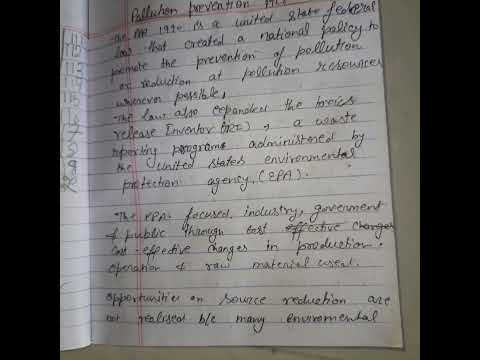 Pollution prevention
The PPA 1990 is a united state federal
law that created a national policy to
promote the prevention of pollution
or reduction at pollution resources
whenever possible,
The law also expanded the toxics
release Inventor (TRI), a waste
reporting program administored by
the united states environmental
protection agency, (EPA).
The PPA focused, industry, goverment
& public through cost effective changes
cost-effective changes in production.
operation & raw material used.
opportunities on source reduction are
not realised b/c many enviromental